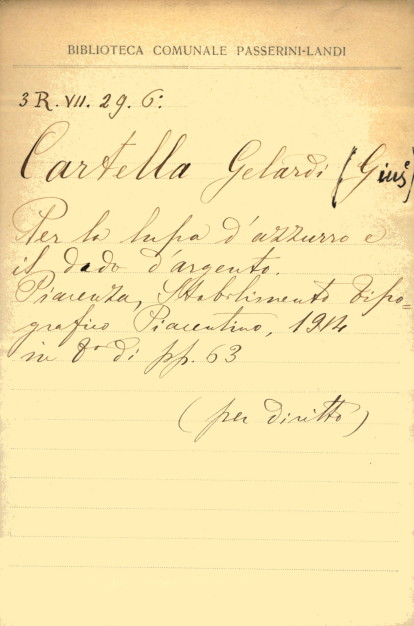 BIBLIOTECA COMUNALE PASSERINI-LANDI
3 R. VII. 29. 6°.
Cartella Gelardi (Giusᵉ)
Per la lupa d'azzurro e
il dado d'argento.
Piacenza, Stabilimento Tipo=
grafico Piacentino, 1914
in 8° di pp. 63
(per diritto)